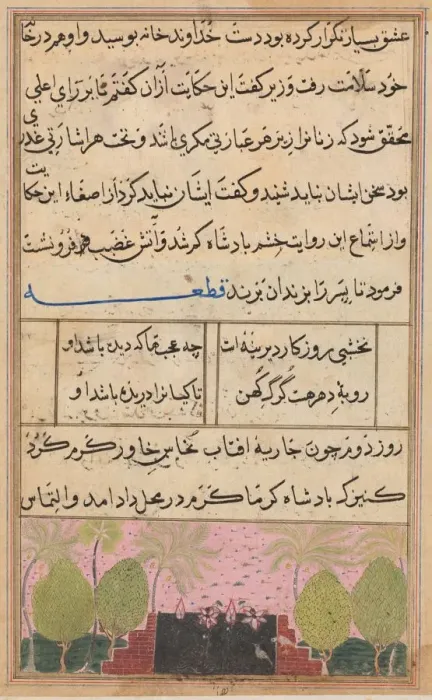 عشق بسیار تکرار کرده بود دست خداوند خانه بوسید و او هم در
خود سلامت رفت وزیر کفت این حکایت ازان کفتم تا بر رای اعلی
محقق شود که زنانرا زیر هر عبارتی مکری باشد و تحت هر اشارتی غدری
بود سخن ایشان نباید شنید و کفت ایشان نباید کرد از اصغاء این حکایت
و از استماع این روایت خشم بادشاه شد و آتش غضب فرو نشست
فرمود تا پسر را بزندان برند قطعه
نخشبی روزکار دیرینه است چه عجبها که دیده باشد او
روبهٔ دهر هست کرک کهن تا کیانرا دریده باشد او
روز دوم چون جاریهٔ افتاب نخاس خاور کرم کرد
کنیزک بادشاه کرماکرم در محل داد امد و التماس